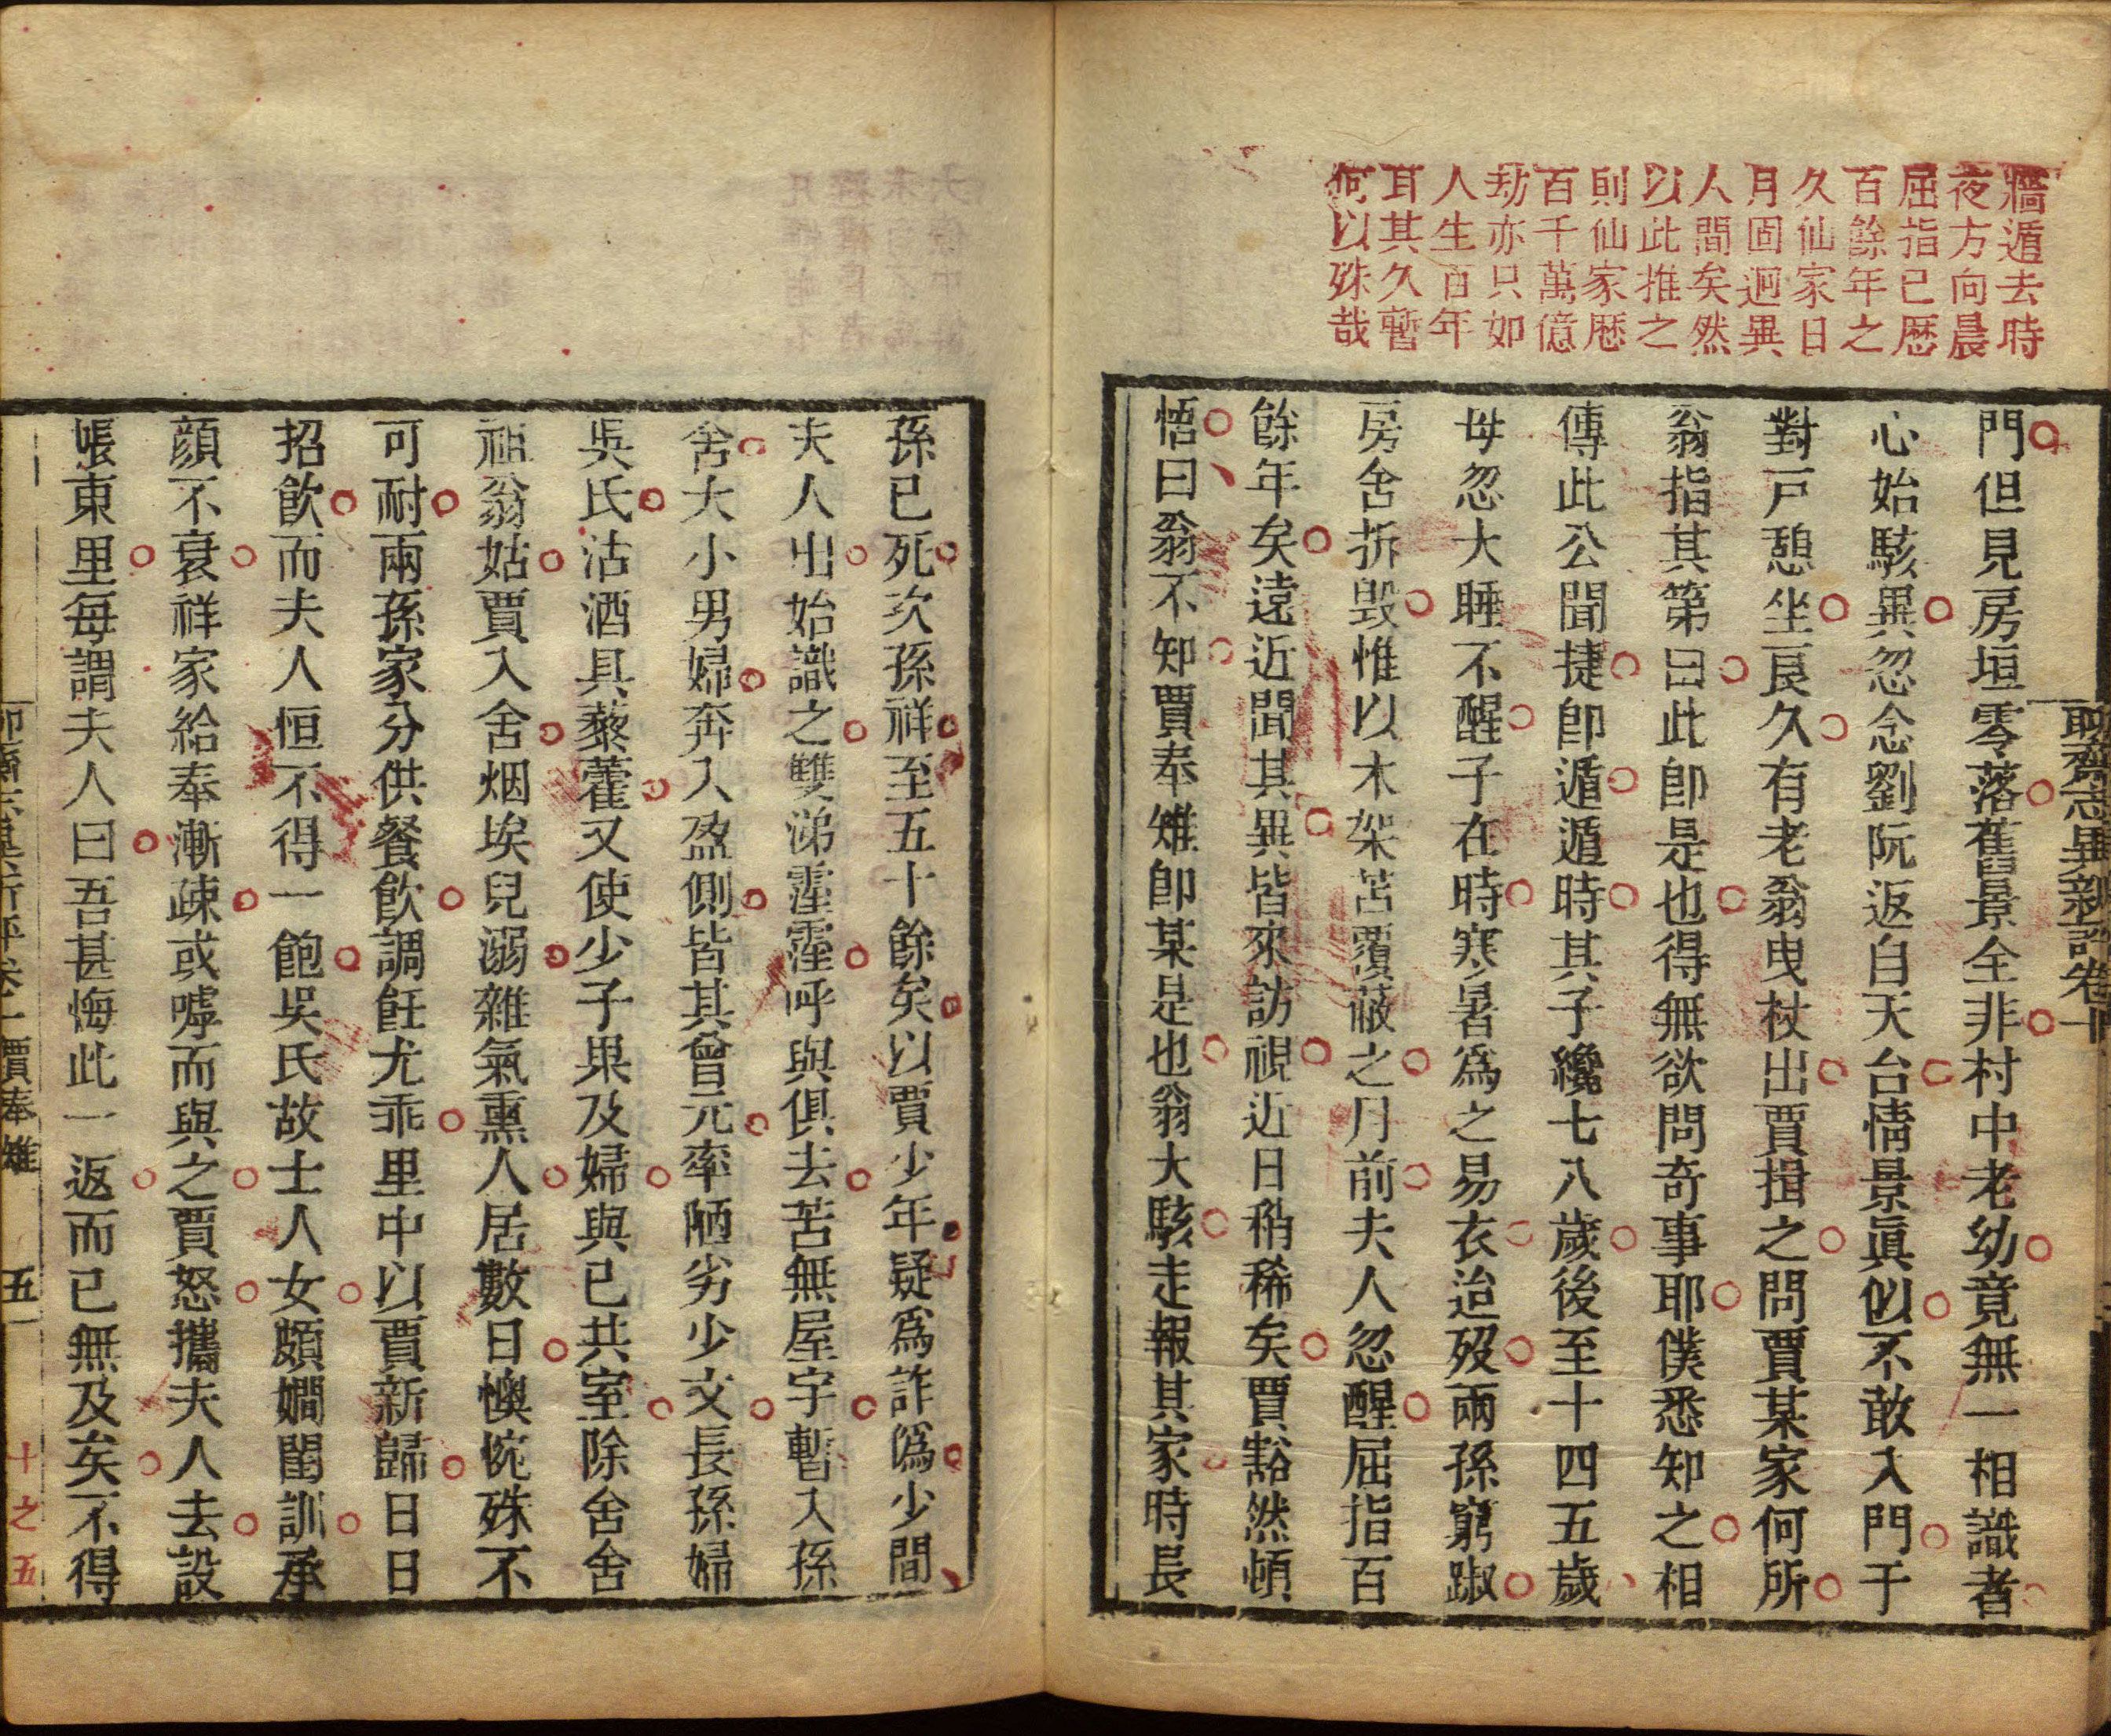 牆遁去時
夜方向晨
屈指已厯
百餘年之
久仙家日
月固迥異
人間矣然
以此推之
則仙家厯
百千萬億
劫亦只如
人生百年
耳其久暫
何以殊哉
聊齋志異新評卷十
門但見房垣零落舊景全非村中老幼竟無一相識者
心始駭異忽念劉阮返自天台情景眞似不敢入門于
對戸憩坐良久有老翁曳杖出賈揖之問賈某家何所
翁指其第曰此卽是也得無欲問奇事耶僕悉知之相
傳此公聞捷卽遁遁時其子纔七八歲後至十四五歲
母忽大睡不醒子在時寒暑爲之易衣迨歿兩孫窮踧
房舍拆毀惟以木架苫覆蔽之月前夫人忽醒屈指百
餘年矣遠近聞其異皆來訪視近日稍稀矣賈豁然頓
悟曰翁不知賈奉雉卽某是也翁大駭走報其家時長
孫已死次孫祥至五十餘矣以賈少年疑爲詐僞少間
夫人出始識之雙涕霪霪呼與俱去苦無屋宇暫入孫
舍大小男婦奔入盈側皆其曾元率陋劣少文長孫婦
吳氏沽酒具藜藿又使少子果及婦與已共室除舍舍
祖翁姑賈入舍烟埃兒溺雜氣熏人居數日懊惋殊不
可耐兩孫家分供餐飲調飪尤乖里中以賈新歸日日
招飲而夫人恒不得一飽吳氏故士人女頗嫺閨訓承
顏不衰祥家給奉漸疎或嘑而與之賈怒攜夫人去設
帳東里每謂夫人曰吾甚悔此一返而已無及矣不得
聊齋志異新評卷十 賈奉雉 五
十之五